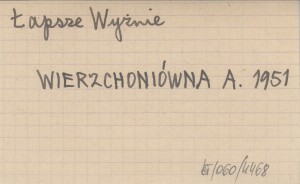 Łapsze Wyżnie
WIERZCHONIÓWNA A. 1951
/060/4468